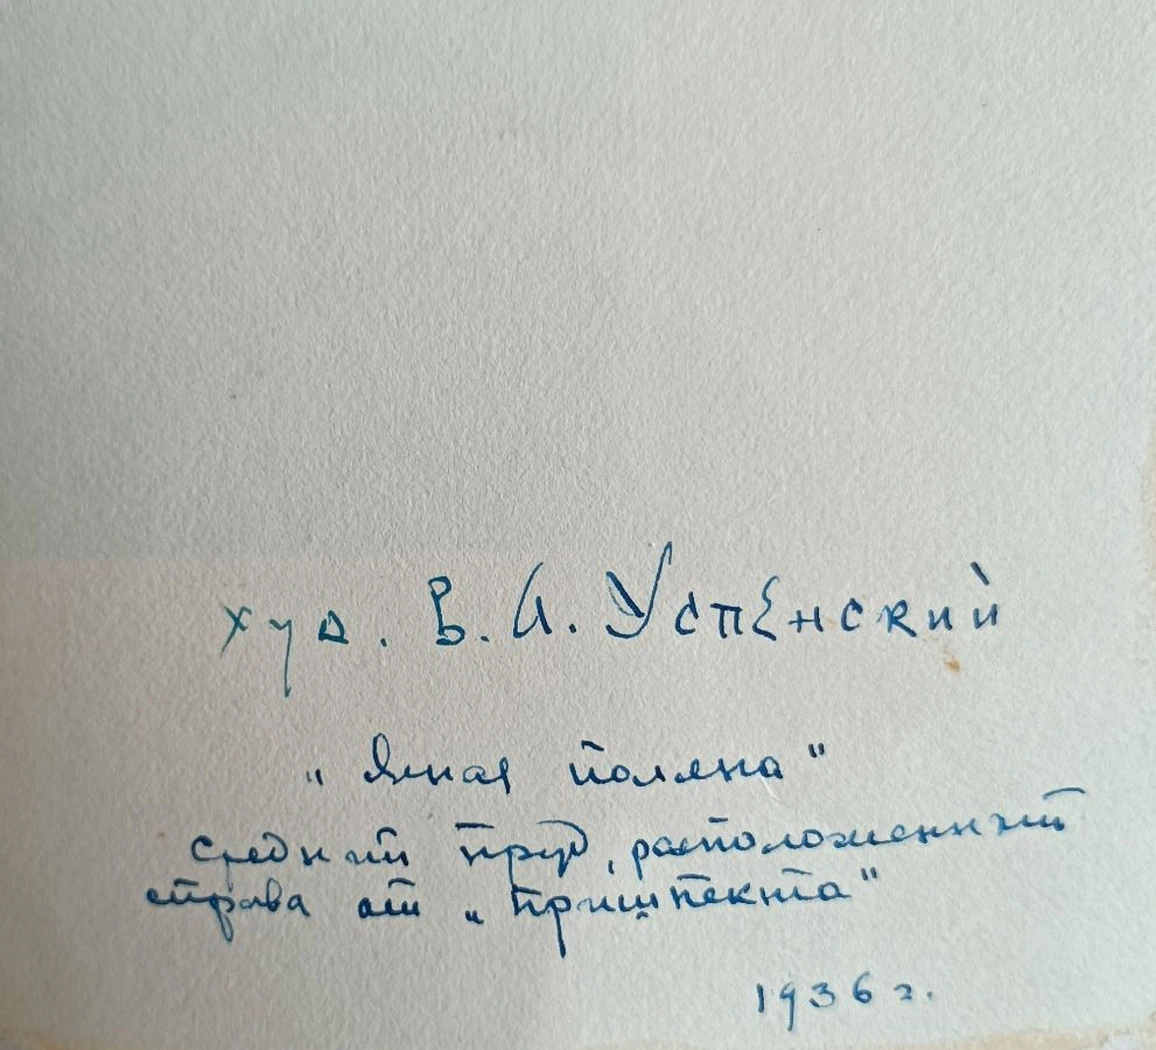 худ. В. А. Успенский
"Ясная поляна"
Средний пруд, расположенный
справа от "Пришпекта"
1936 г.